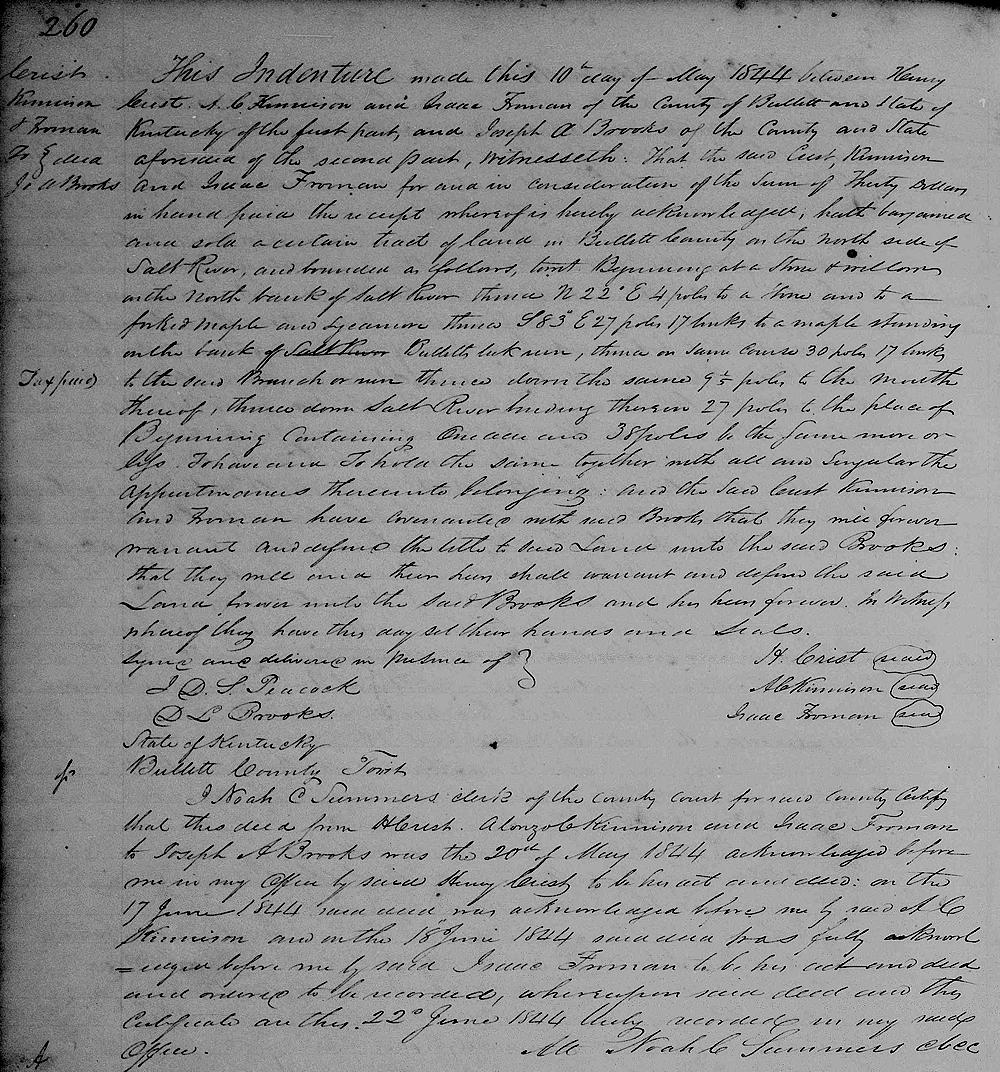 260
Crist
Kinnison
& Froman
To } deed
Jo A Brooks
This Indenture made this 10th day of May 1844 between Henry
Crist. A. C Kinnison and Isaac Froman of the County of Bullett and State of
Kentucky of the first part, and Joseph A Brooks of the County and State
aforesaid of the second part, Witnesseth: That the said Crist, Kinnison
and Isaac Froman for and in consideration of the Sum of Thirty Dollars
in hand paid the receipt whereof is hereby acknowledged, hath bargained
and sold a certain tract of land in Bullett County on the North side of
Salt River, and bounded as follows, towit Beginning at a Stone & willow
on the North bank of Salt River thence N 22° E 4 poles to a Stone and to a
forked maple and Sycamore thence S 83° E 27 poles 17 links to a maple standing
on the bank of Salt River Bulletts lick run, thence on same course 30 poles 17 links
Tax paid
to the said Branch or run thence down the same 9 1/2 poles to the mouth
thereof, thence down Salt River binding thereon 27 poles to the place of
Beginning Containing One acre and 38 poles be the same more or
less. To have and To hold the same together with all and Singular the
appurtenances thereunto belonging: and the said Crist Kinnison
and Froman have covenanted with said Brooks that they will forever
warrant and defend the title to said Land unto the said Brooks:
that they will and their heirs shall warrant and defend the said
Land forever unto the said Brooks and his heirs forever. In Witness
whereof they have this day set their hands and Seals.
Signed and delivered in presence of }
H. Crist (seal)
J D. S. Peacock
A C Kinnison (seal)
D L Brooks.
Isaac Froman (seal)
State of Kentucky
Bullett County Towit
I Noah C Summers clerk of the county court for said county Certify
that this deed from H Crist. Alonzo C Kinnison and Isaac Froman
to Joseph A Brooks was the 20th of May 1844 acknowledged before
me in my Office by said Henry Crist to be his act and deed: on the
17 June 1844 said deed was acknowledged before me by said A C
Kinnison and on the 18 June 1844 said deed was fully acknowl
=edged before me by said Isaac Froman to be his act and deed
and ordered to be recorded, whereupon said deed and this
Certificate are this 22d June 1844 duly recorded in my said
Office.
Att Noah C Summers cbcc